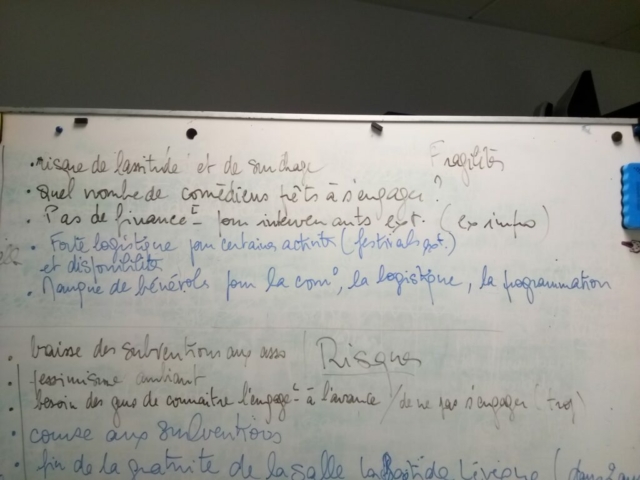 Fragilités
• risque de lassitude et de surcharge
• quel nombre de comédiens prêts à s'engager ?
• Pas de financEt pour intervenants ext. (ex impro)
• Forte logistique pour certaines activités (festivals ext.)
et disponibilités
• Manque de bénévoles pour la com°, la logistique, la programmation
Risques
• baisse des subventions aux asso
• pessimisme ambiant
• besoin des gens de connaitre l'engagEt à l'avance / de ne pas s'engager (trop)
• course aux subventions
• fin de la gratuité de la salle